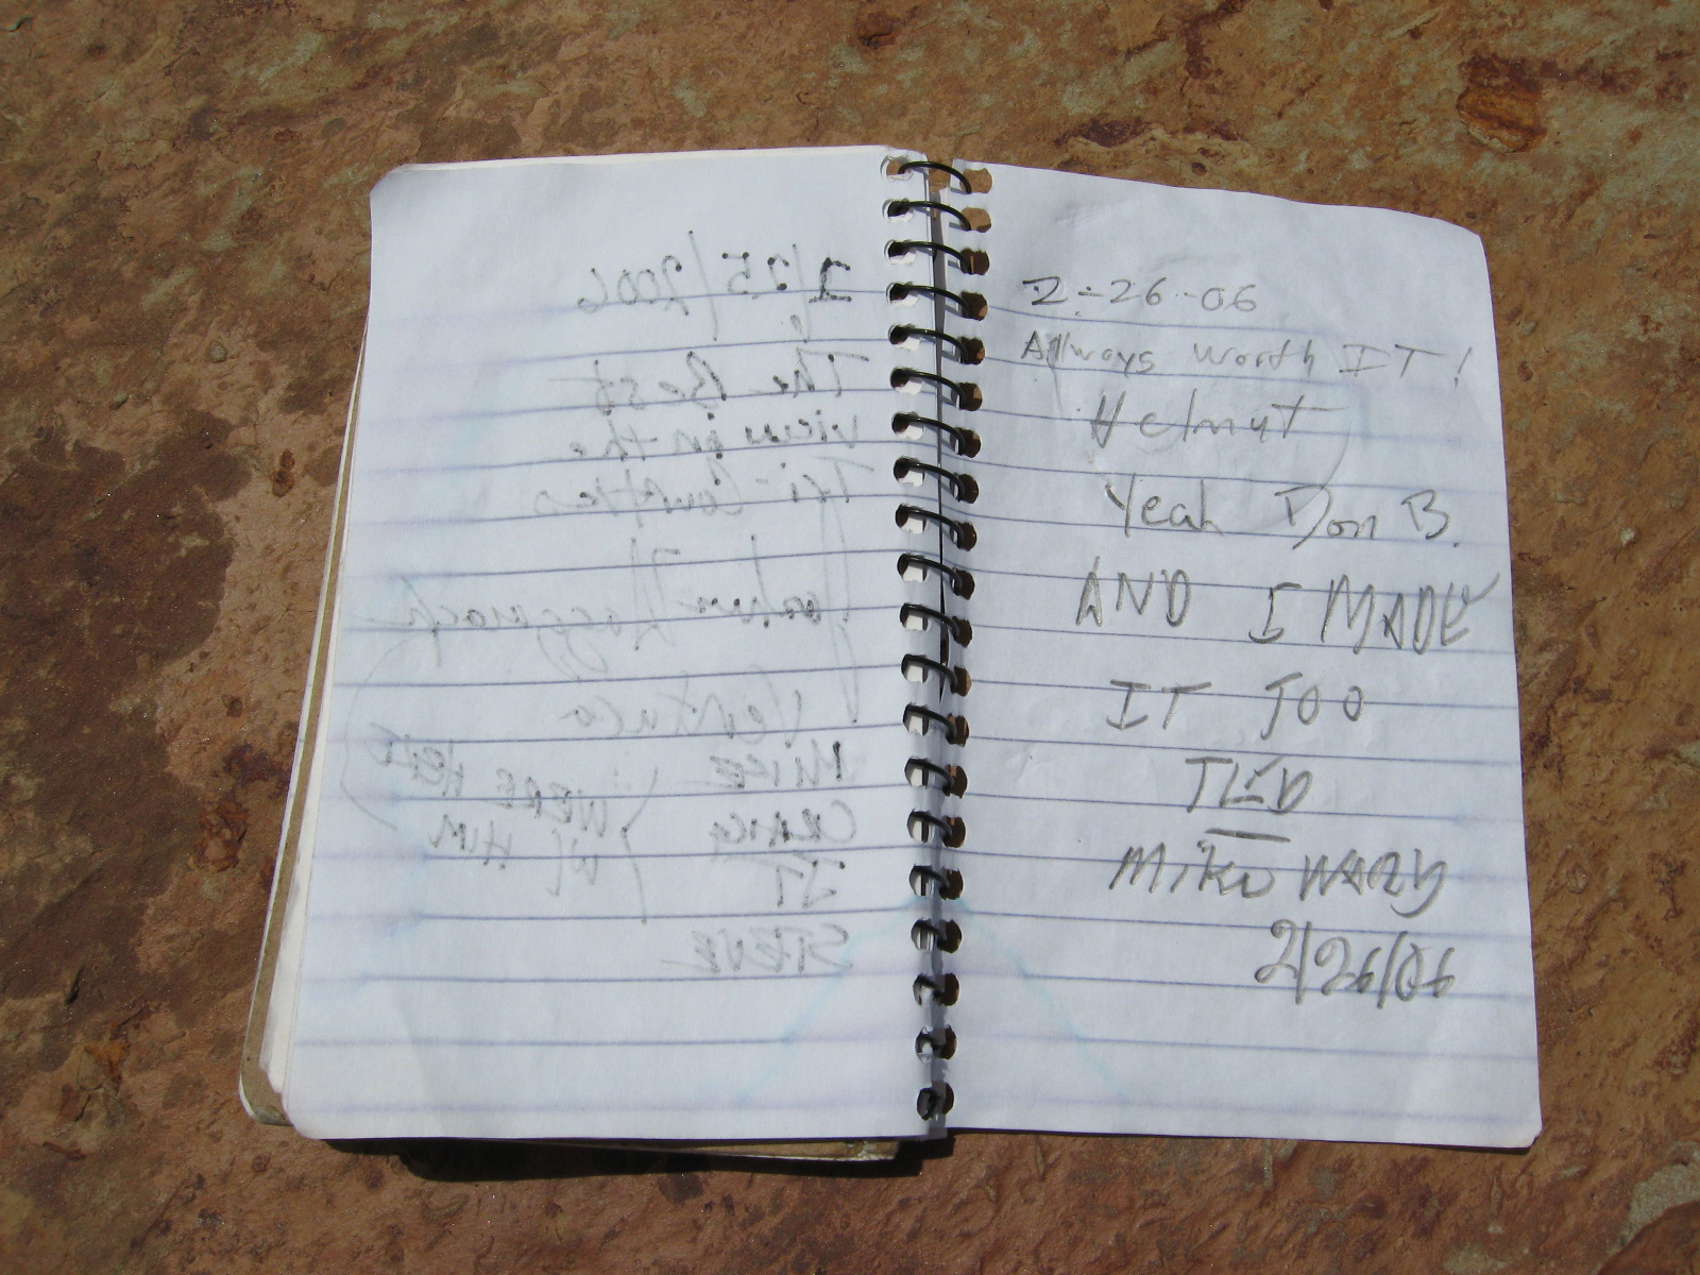 2/25/2006
The Best
view in the
Tri-Counties
Ventura
MIKE
CRAIG
JT
STEVE
WERE HERE
W/ HIM
2-26-06
Allways worth IT!
Helmut
Yeah Don B.
AND I MADE
IT TOO
TED
MIKE WARY
2/26/06